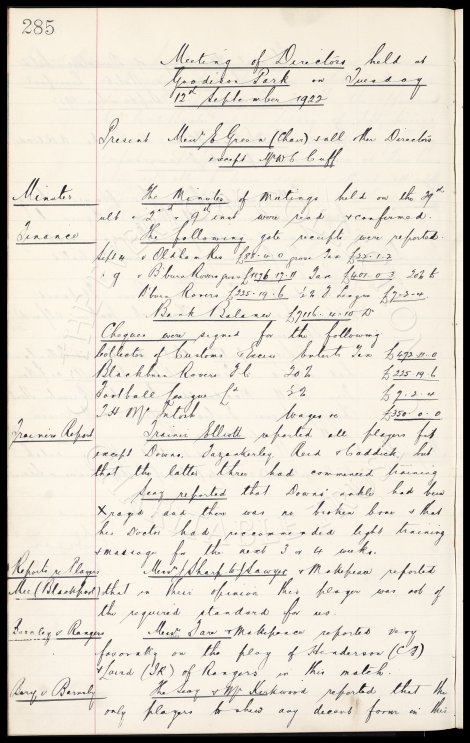 285
Meeting of Directors held at
Goodison Park on Tuesday
12th September 1922
Present Messrs E Green (Chair) & all other Directors
except Mr W C Cuff
Minutes The Minutes of Meetings held on the 29th
ult & 2nd & 9th inst were read & confirmed.
Finance The following gate receipts were reported.
Sept 4 v Oldham Res £88-4-0 gross Tax £22-1-2
" 9 v B'burn Rovers gross £1176-17-11 Tax £401-0-3 20% to
B'burn Rovers £225-19-6 ½% F League £7-2-4.
Bank Balance £7116-4-10 Dr
Cheques were signed for the following
Collector of Customs & Excise Enterts Tax £472-11-0
Blackburn Rovers F.C. 20% £225-19-6
Football League Ld ½% £7-2-4
T H McIntosh Wages &c £350-0-0
Trainers Report Trainer Elliott reported all players fit
except Downs, Fazackerley, Reid & Caddick, but
that the latter three had commenced training
Secy reported that Downs' ankle had been
X rayed and there was no broken bone & that
his Doctor had recommended light training
& massage for the next 3 or 4 weeks.
Reports re Players Messrs Sharp, Sawyer & Makepeace reported
Mee (Blackpool) that in their opinion this player was not of
the required standard for us.
Burnley v Rangers Messrs & Makepeace reported very
favorably on the play of Henderson (C F)
& Laird (IR) of Rangers in this match.
Bury v Barnsley The Secy & Mr Kirkwood reported that the
only players to shew any decent form in this